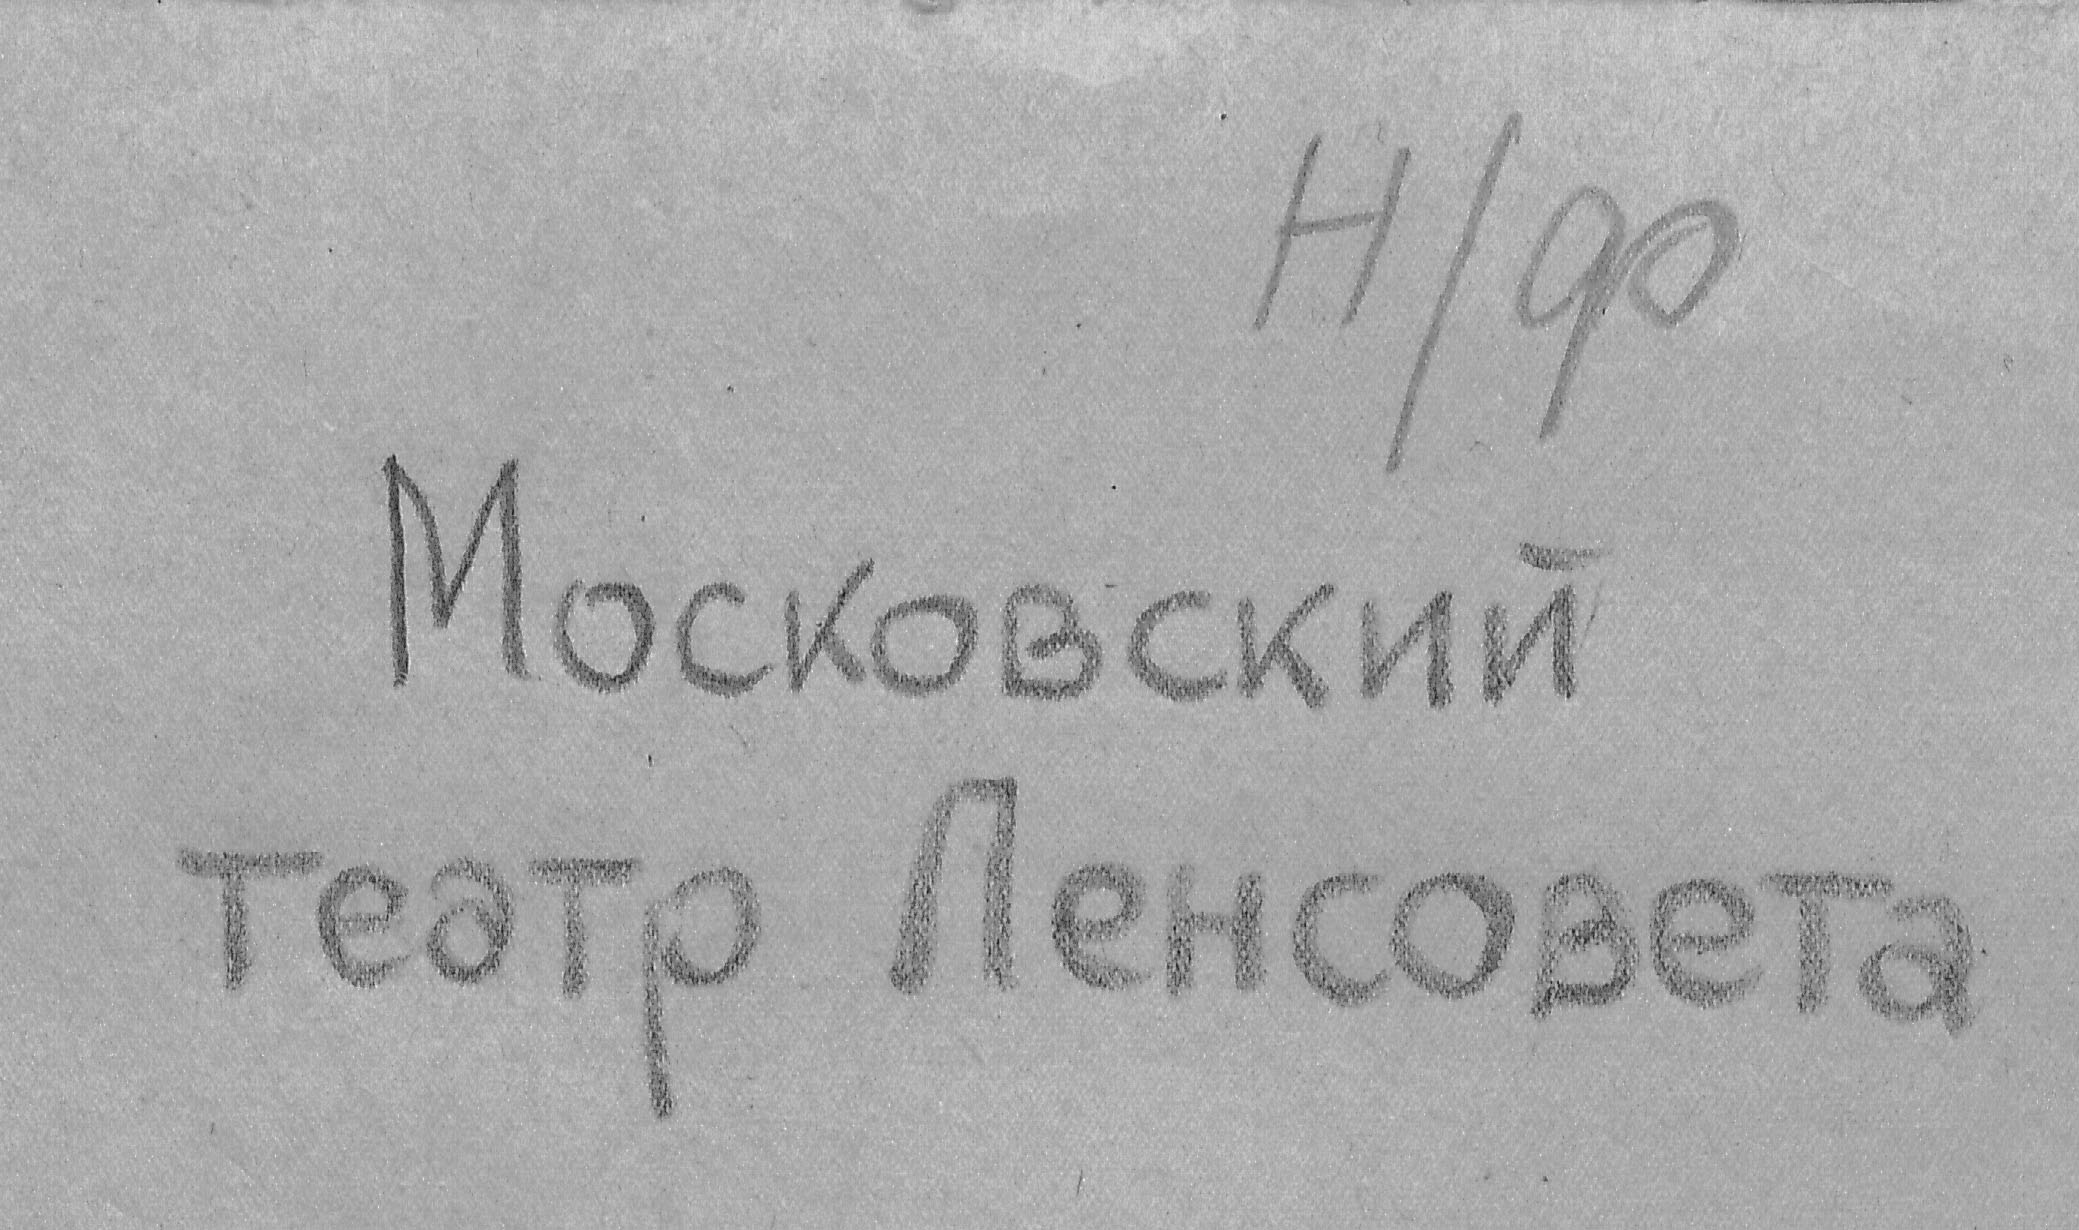 н/ф
Московский
театр Ленсовета